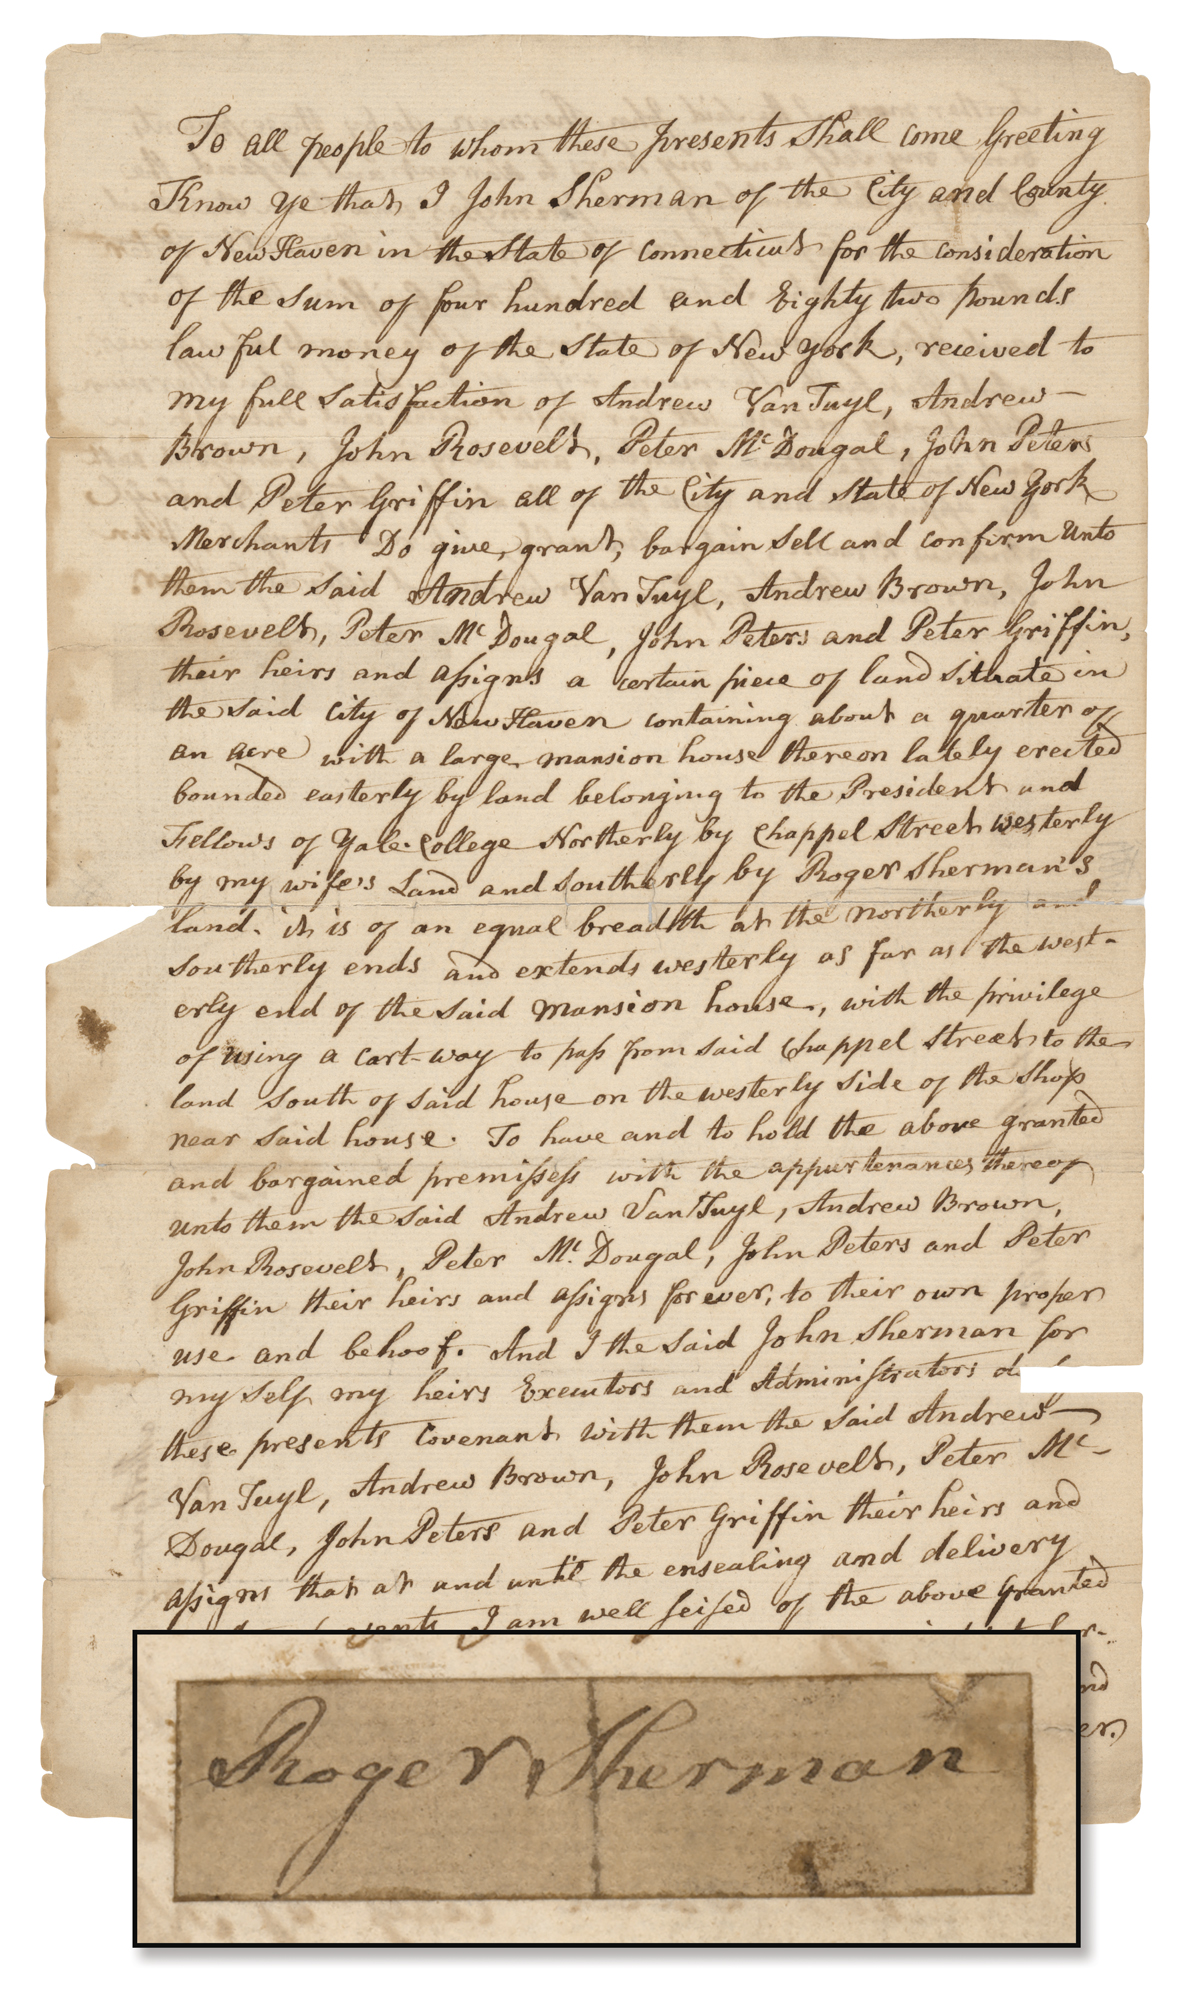 To all people to whom these presents Shall come Greeting
Know ye that I John Sherman of the City and County
of New Haven in the State of Connecticut for the consideration
of the sum of four hundred and Eighty two pounds
lawful money of the State of New York, received to
my full Satisfaction of Andrew Van Tuyl, Andrew
Brown, John Rosevelt, Peter Mc Dougal, John Peters
and Peter Griffin all of the City and State of New York
Merchants Do give, grant, bargain Sell and confirm Unto
them the Said Andrew Van Tuyl, Andrew Brown, John
Rosevelt, Peter Mc Dougal, John Peters and Peter Griffin,
their heirs and assigns a certain piece of land Situate in
the Said City of New Haven containing about a quarter of
an acre with a large mansion house thereon lately erected
bounded easterly by land belonging to the President and
Fellows of Yale-College Northerly by Chappel Street westerly
by my wife's Land and Southerly by Roger Sherman's
land. it is of an equal breadth at the northerly and
Southerly ends and extends westerly as far as the west-
erly end of the Said mansion house, with the privilege
of using a cart-way to pass from said Chappel Street to the
land South of Said house on the westerly Side of the Shop
near Said house. To have and to hold the above granted
and bargained premisses with the appurtenances thereof
unto them the Said Andrew Van Tuyl, Andrew Brown,
John Rosevelt, Peter Mc. Dougal, John Peters and Peter
Griffin their heirs and assigns forever, to their own proper
use and behoof. And I the Said John Sherman for
my Self my heirs Executors and Administrators do
these presents Covenant with them the Said Andrew
Van Tuyl, Andrew Brown, John Rosevelt, Peter Mc-
Dougal, John Peters and Peter Griffin their heirs and
assigns that at and until the ensealing and delivery
I am well Seised of the above Granted
Roger Sherman